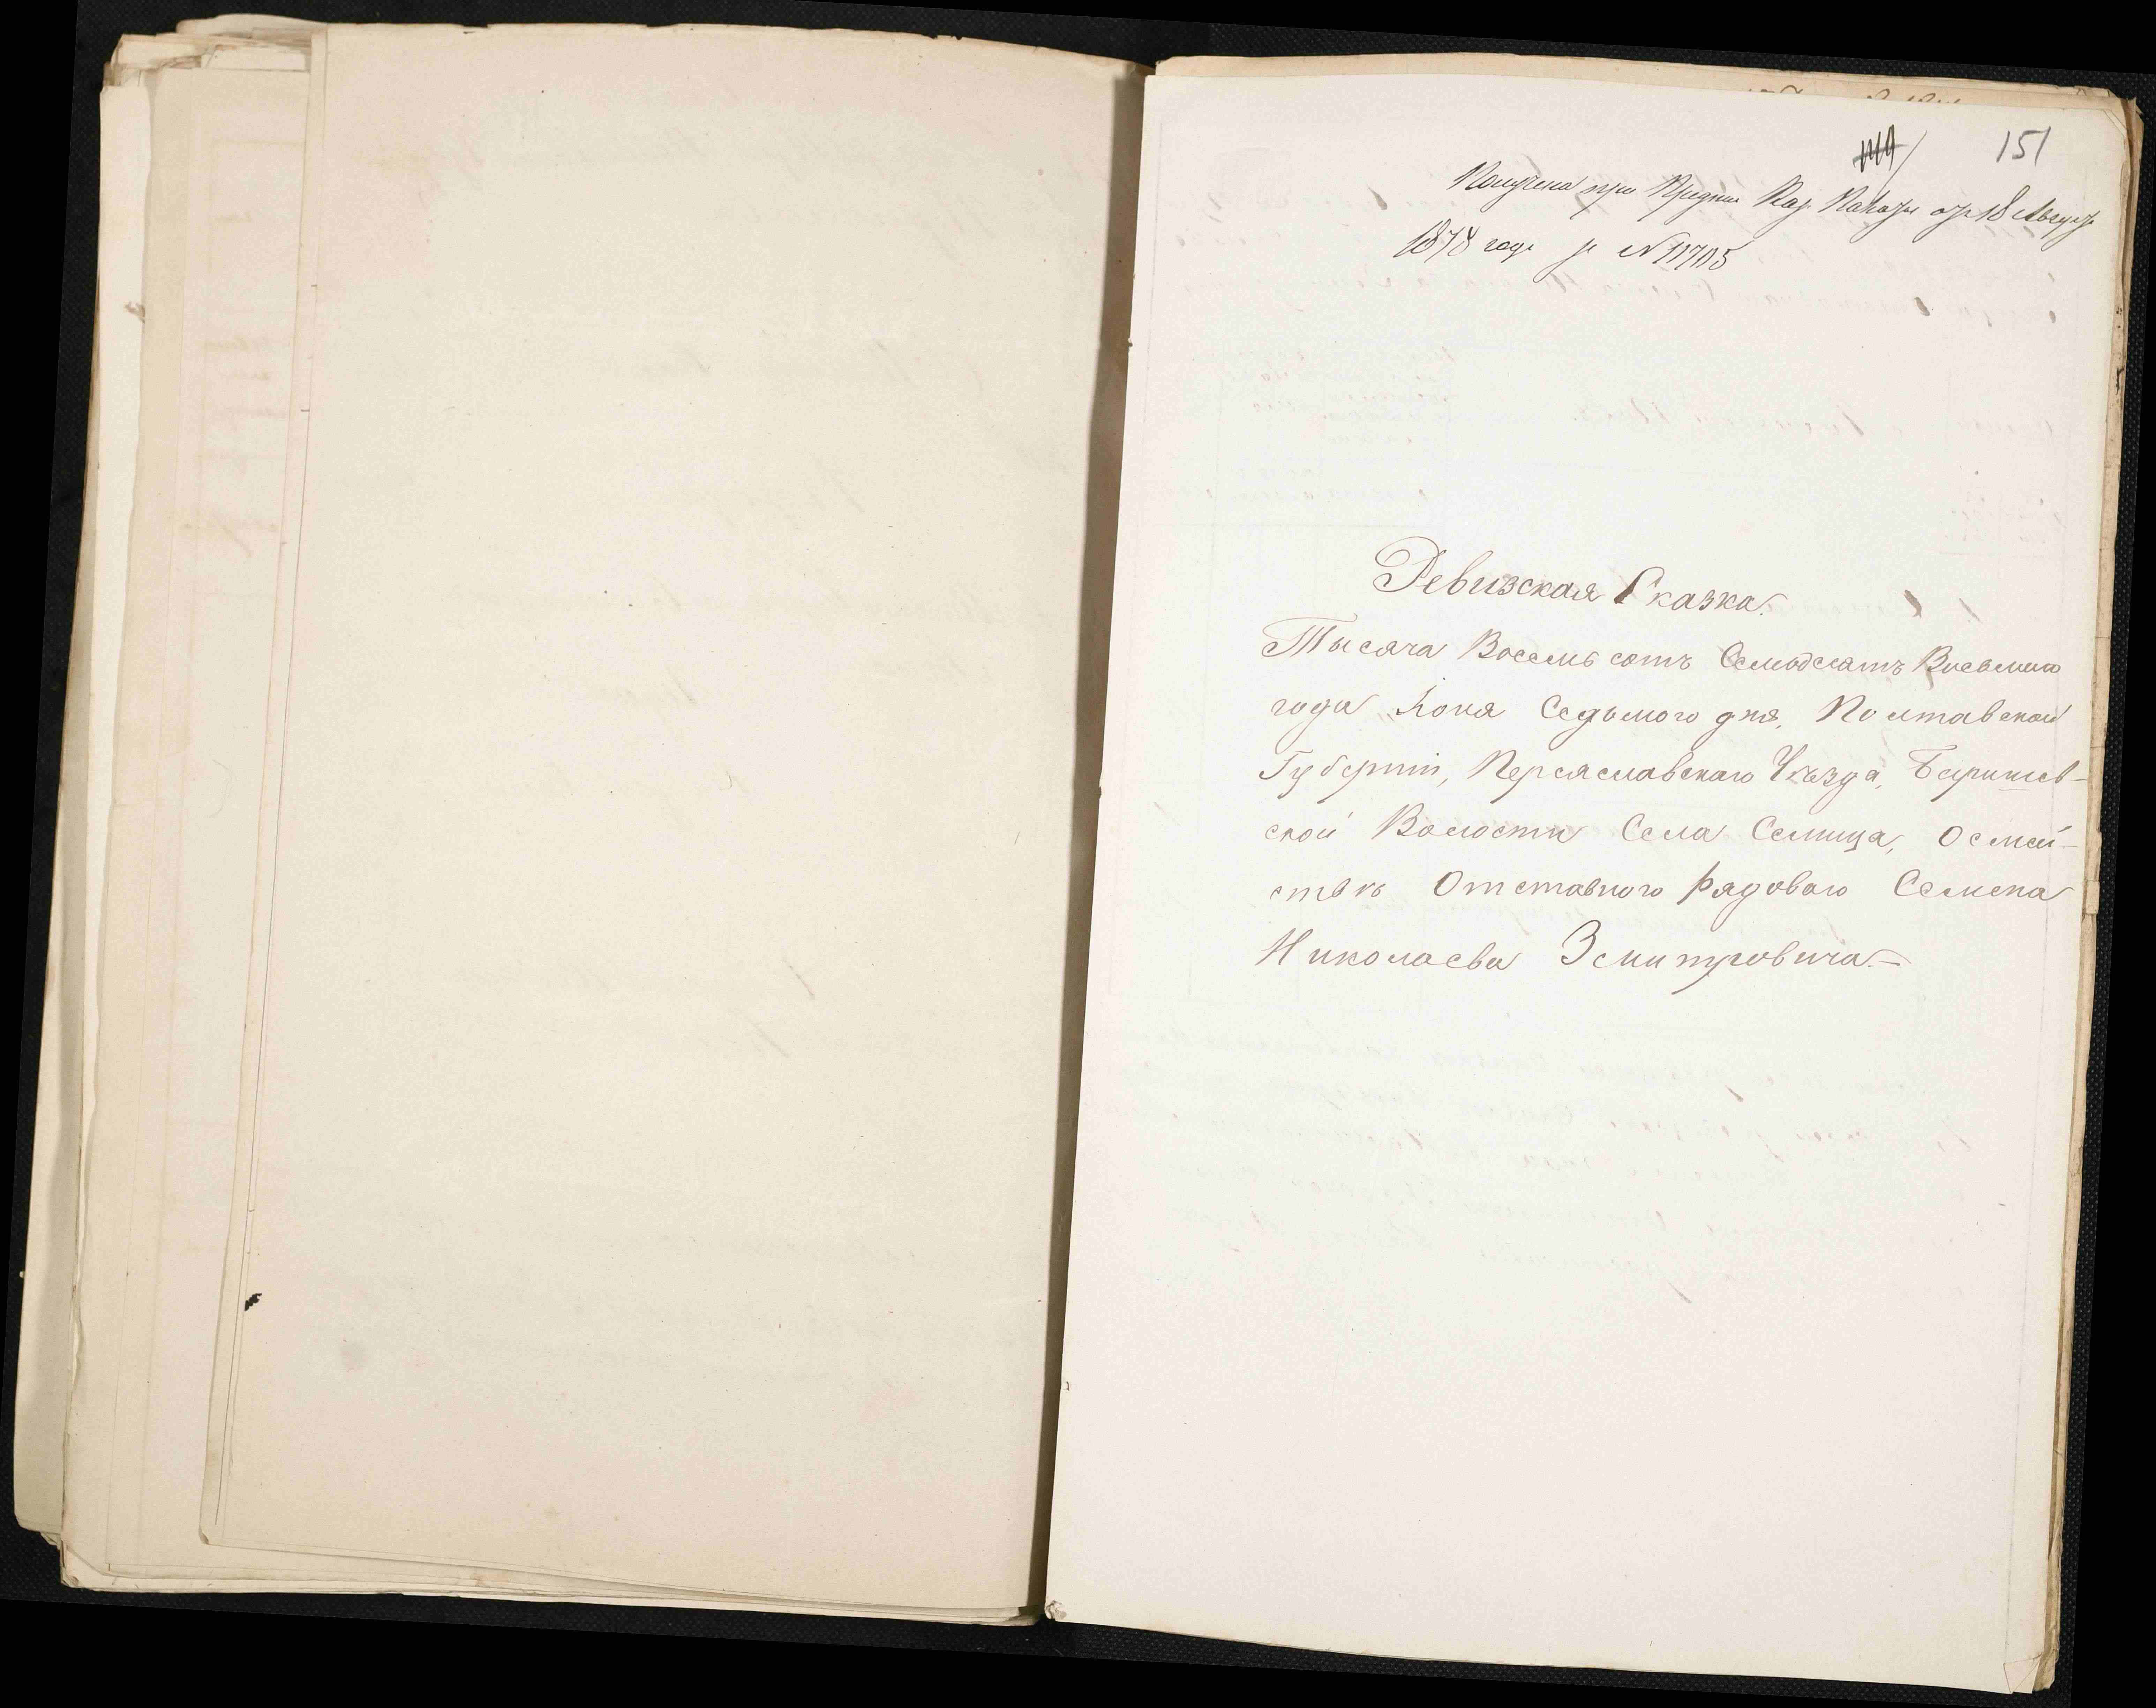 151
Получена при Предпис Каз Палаты отъ 18 Августа
1878 года за N 11705
Ревизская Сказка.
Тысяча Восемь сотъ Семьдесятъ Восьмого
года Іюня Седьмого дня, Полтавской
Губерніи, Переяславскаго Уѣзда, Баришев-
ской Волости Села Селища, О семей-
ствѣ Отставного рядового Семена
Николаева Змитровича.